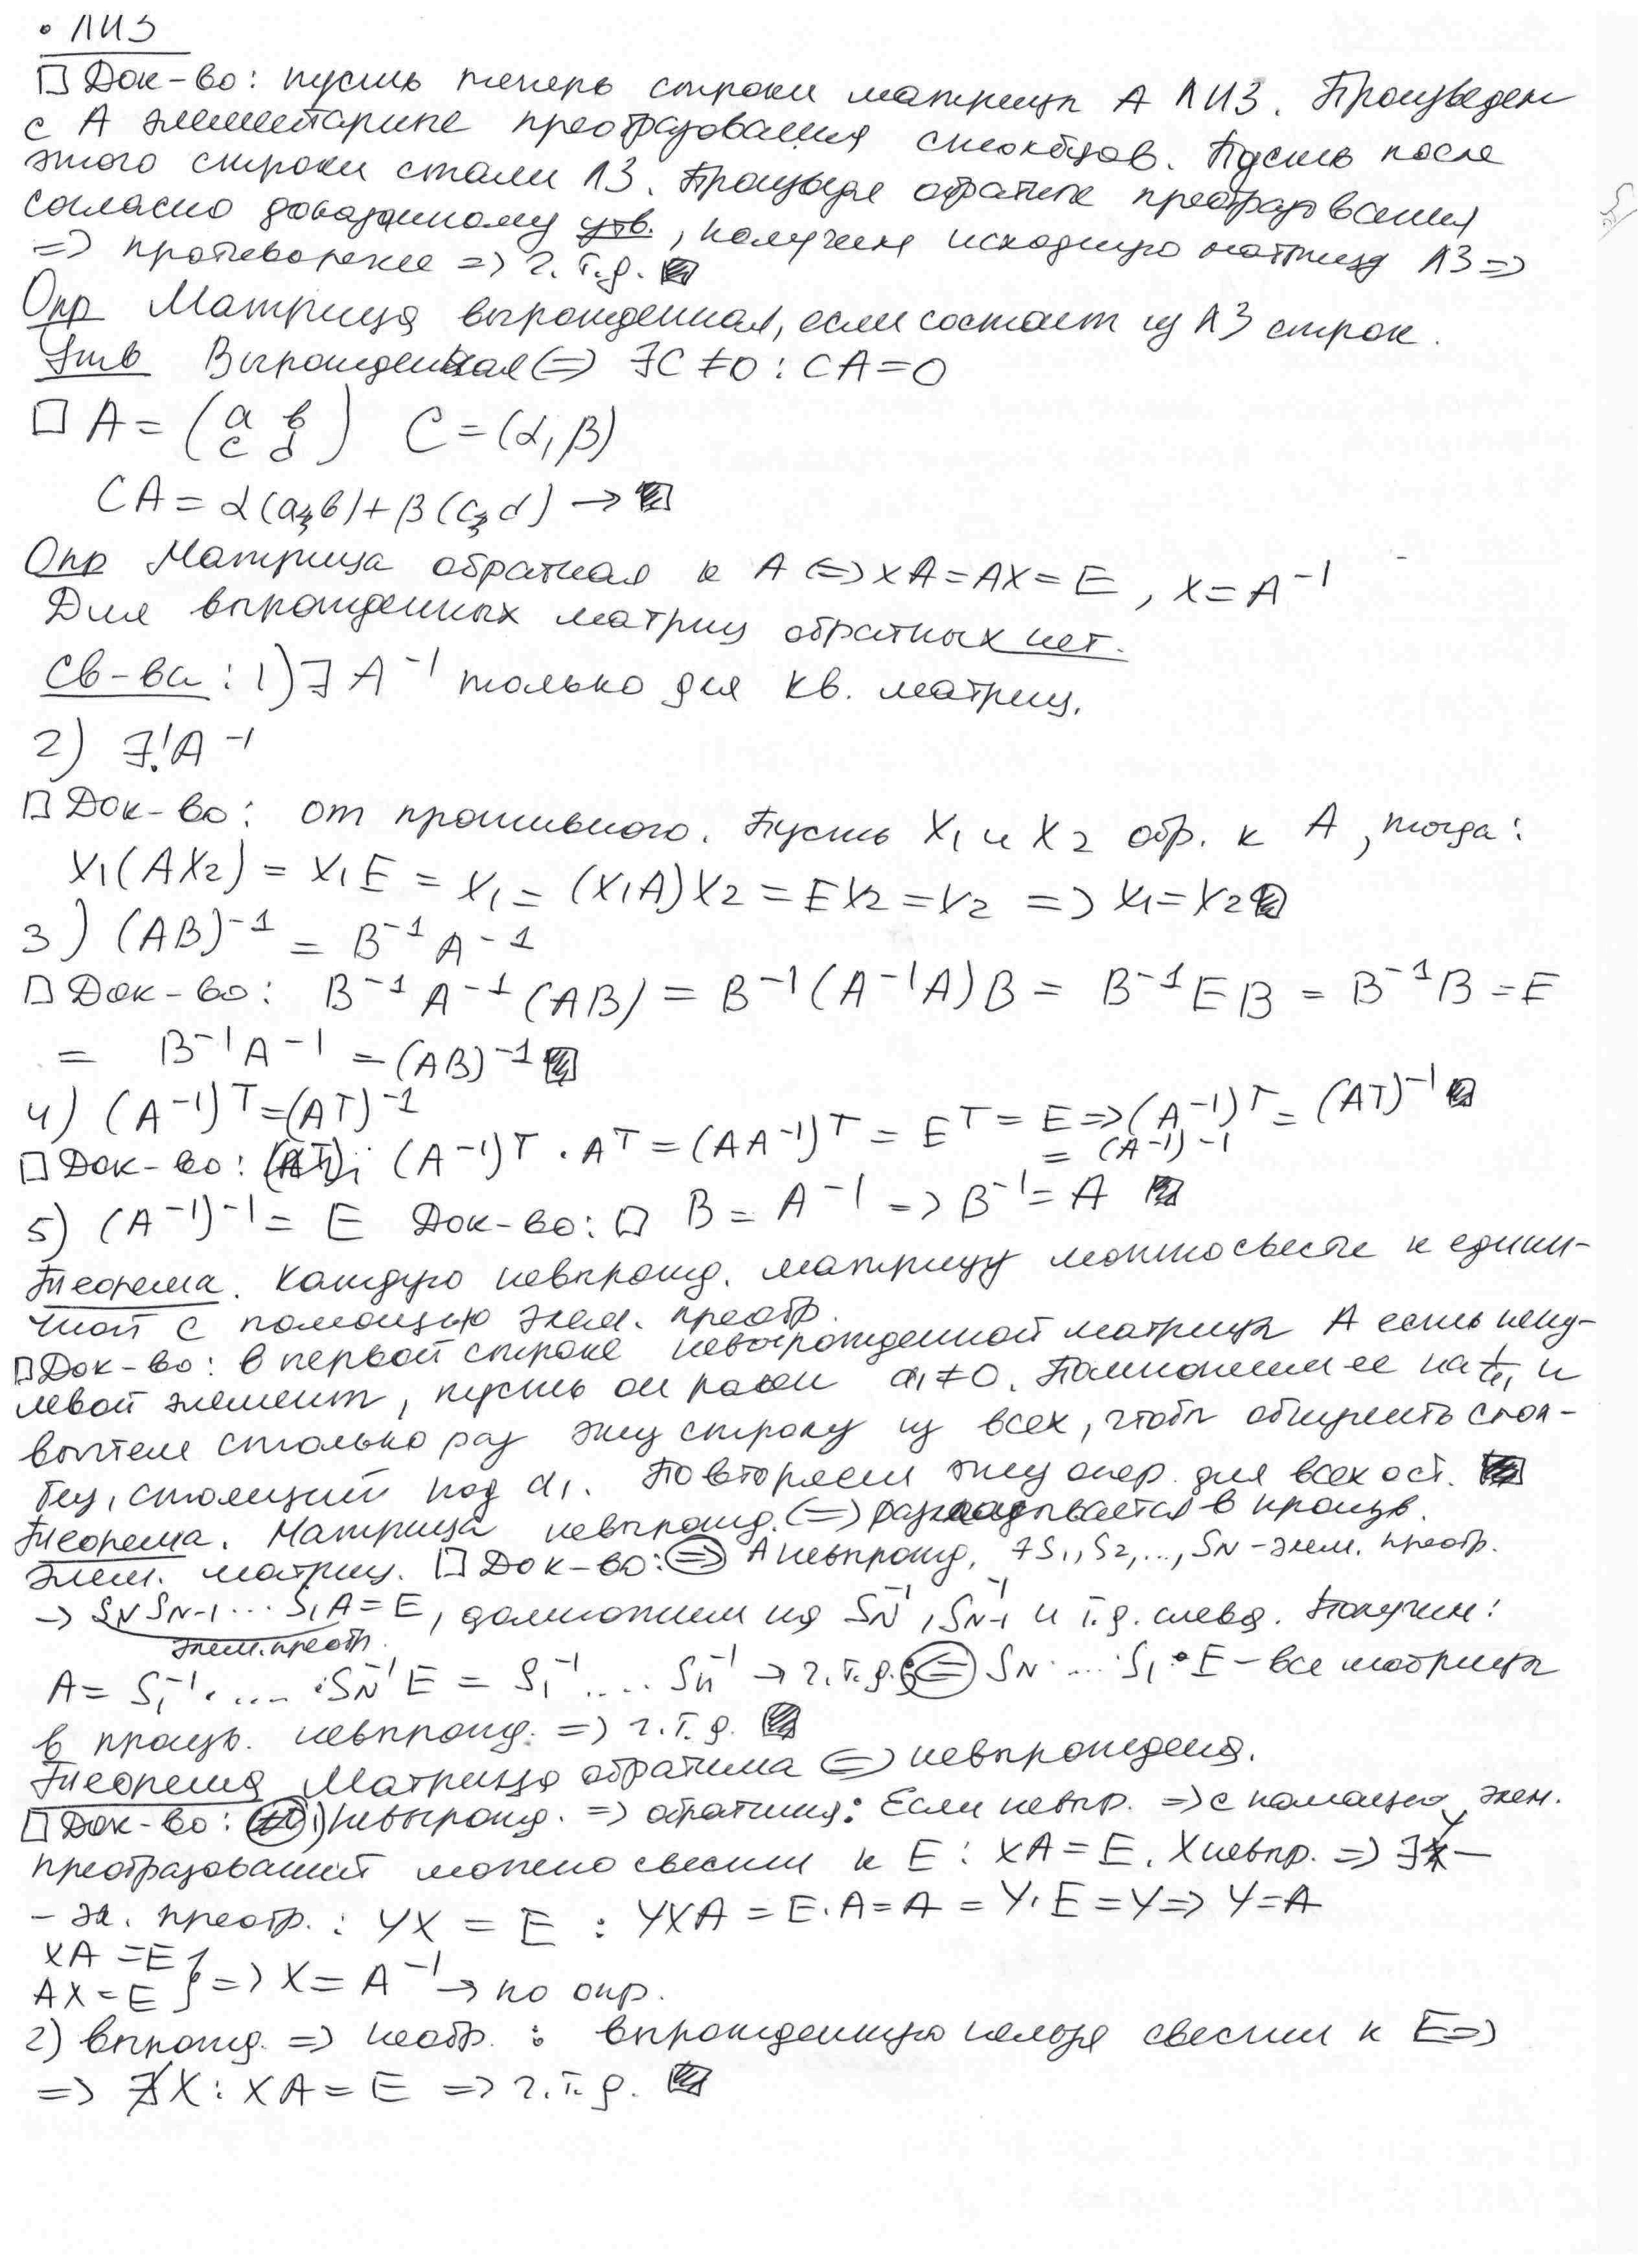 • ЛИЗ
□ Док-во: пусть теперь строки матрицы A ЛИЗ. Произведем
с A элементарные преобразования столбцов. Пусть после
этого строки стали ЛЗ. Произведя обратные преобразования
согласно доказанному утв., получим исходную матрицу ЛЗ =>
=> противоречие => ч.т.д.
Опр Матрица вырожденная, если состоит из ЛЗ строк.
Утв Вырожденная <=> ∃C≠0 : CA=0
□ A = (a b c d) C = (α, β)
CA = α(a, b) + β(c, d) →
Опр Матрица обратная к A <=> XA = AX = E, X = A⁻¹
Для вырожденных матриц обратных нет.
Св-ва: 1) ∃ A⁻¹ только для кв. матриц.
2) ∃! A⁻¹
□ Док-во: от противного. Пусть X₁ и X₂ обр. к A, тогда:
X₁(AX₂) = X₁E = X₁ = (X₁A)X₂ = EX₂ = X₂ => X₁ = X₂
3) (AB)⁻¹ = B⁻¹A⁻¹
□ Док-во: B⁻¹A⁻¹(AB) = B⁻¹(A⁻¹A)B = B⁻¹EB = B⁻¹B = E
= B⁻¹A⁻¹ = (AB)⁻¹
4) (A⁻¹)ᵀ = (Aᵀ)⁻¹
□ Док-во: (A⁻¹)ᵀ · Aᵀ = (AA⁻¹)ᵀ = Eᵀ = E => (A⁻¹)ᵀ = (Aᵀ)⁻¹
= (A⁻¹)⁻¹
5) (A⁻¹)⁻¹ = E Док-во: □ B = A⁻¹ => B⁻¹ = A
Теорема. Каждую невырожд. матрицу можно свести к едини-
чной с помощью элем. преобр.
□ Док-во: в первой строке невырожденной матрицы A есть нену-
левой элемент, пусть он равен a₁≠0. Помножим ее на 1/a₁ и
вычтем столько раз эту строку из всех, чтобы обнулить стол-
бец, стоящий под a₁. Повторяем эту опер. для всех ост.
Теорема. Матрица невырожд. <=> раскладывается в произв.
элем. матриц. □ Док-во: => A невырожд, ∃S₁, S₂, ..., SN - элем. преобр.
→ SN SN-1 ... S₁A = E, домножим на SN⁻¹, SN-1⁻¹ и т.д. слева. Получим:
элем. преобр.
A = S₁⁻¹ · .... · SN⁻¹E = S₁⁻¹ .... Sn⁻¹ → ч.т.д.; <= SN · ... · S₁ · E - все матрицы
в произв. невырожд. => ч.т.д.
Теорема Матрица обратима <=> невырождена.
□ Док-во: 1) невырожд. => обратима: Если невыр. => с помощью элем.
преобразований можно свести к E : XA = E. X невыр. => ∃Y -
- эл. преобр. : YX = E : YXA = E·A = A = Y·E = Y => Y = A
XA = E
AX = E } => X = A⁻¹ → по опр.
2) вырожд. => необр. : вырожденную нельзя свести к E =>
=> ∄X : XA = E => ч.т.д.